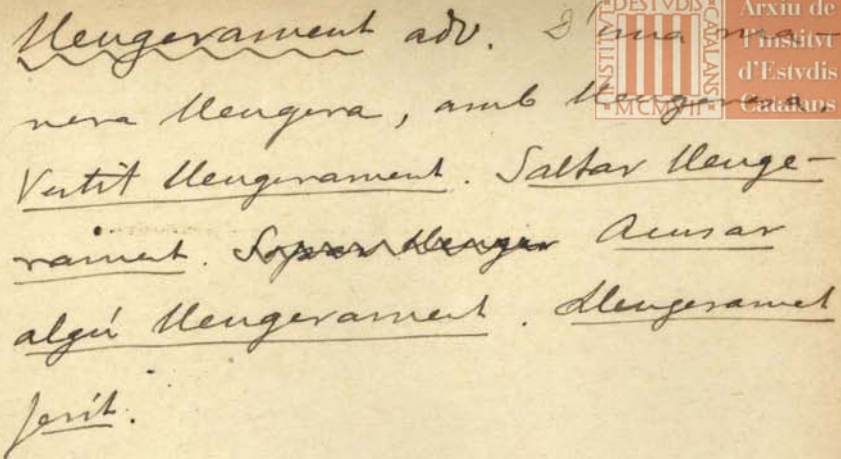 Lleugerament adv. D'una ma-
nera lleugera, amb lleugeresa.
Vestit lleugerament. Saltar lleuge-
rament. Sopar lleuger Acusar
algú lleugerament. Lleugeramet
ferit.
INSTITVT DESTVDIS CATALANS
MCMVII
Arxiu de
l'Institvt
d'Estvdis
Catalans